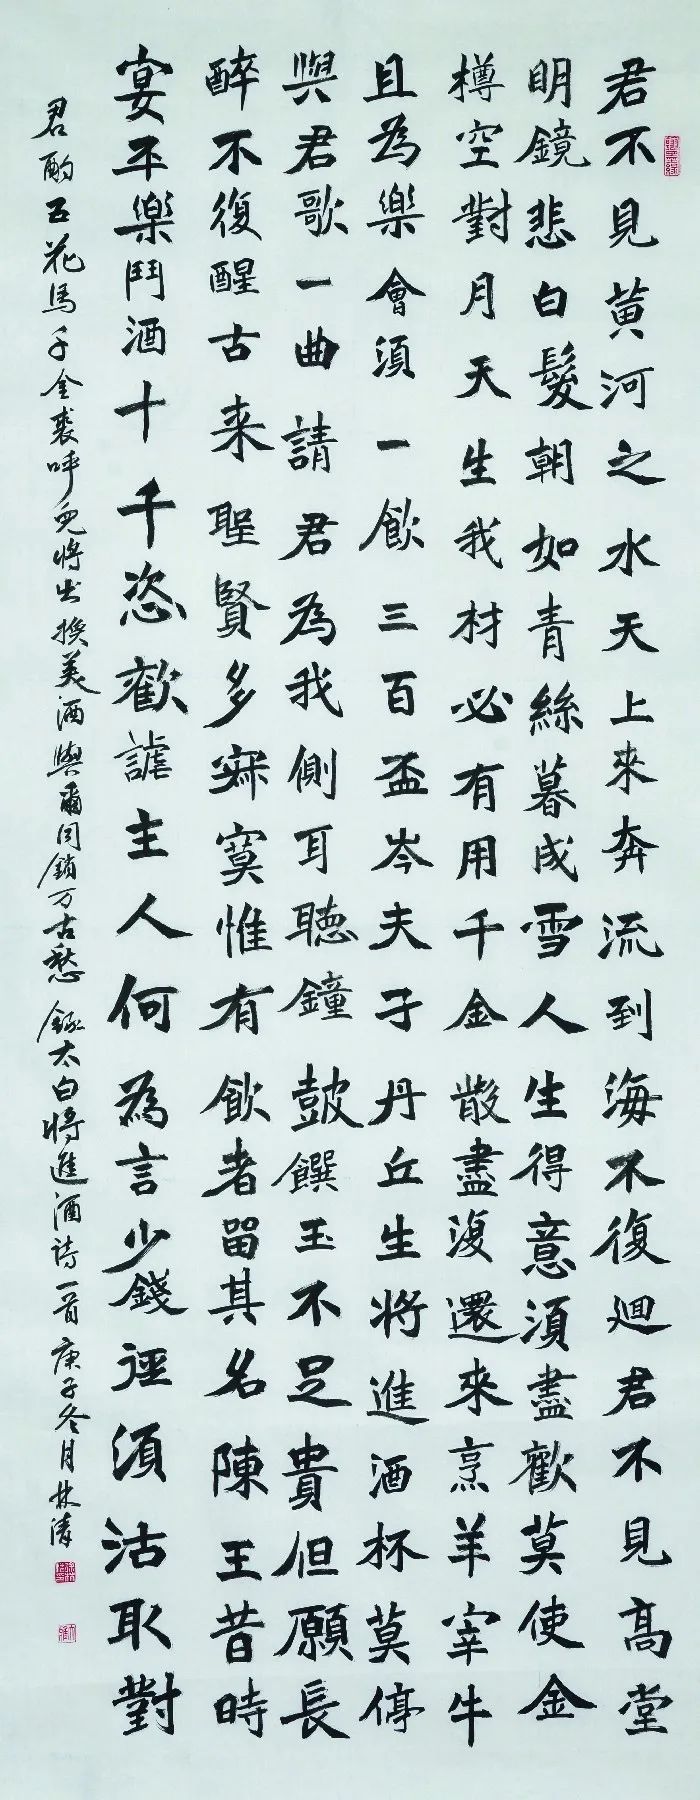 君不見黃河之水天上來奔流到海不復迴君不見高堂
明鏡悲白髮朝如青絲暮成雪人生得意須盡歡莫使金
樽空對月天生我材必有用千金散盡復還來烹羊宰牛
且為樂會須一飲三百盃岑夫子丹丘生將進酒杯莫停
與君歌一曲請君為我側耳聽鐘鼓饌玉不足貴但願長
醉不復醒古来聖賢多寂寞惟有飲者留其名陳王昔時
宴平樂鬥酒十千恣歡謔主人何為言少錢徑須沽取對
君酌五花馬千金裘呼兒將出換美酒與爾同銷万古愁 錄太白將進酒詩一首 庚子冬月林